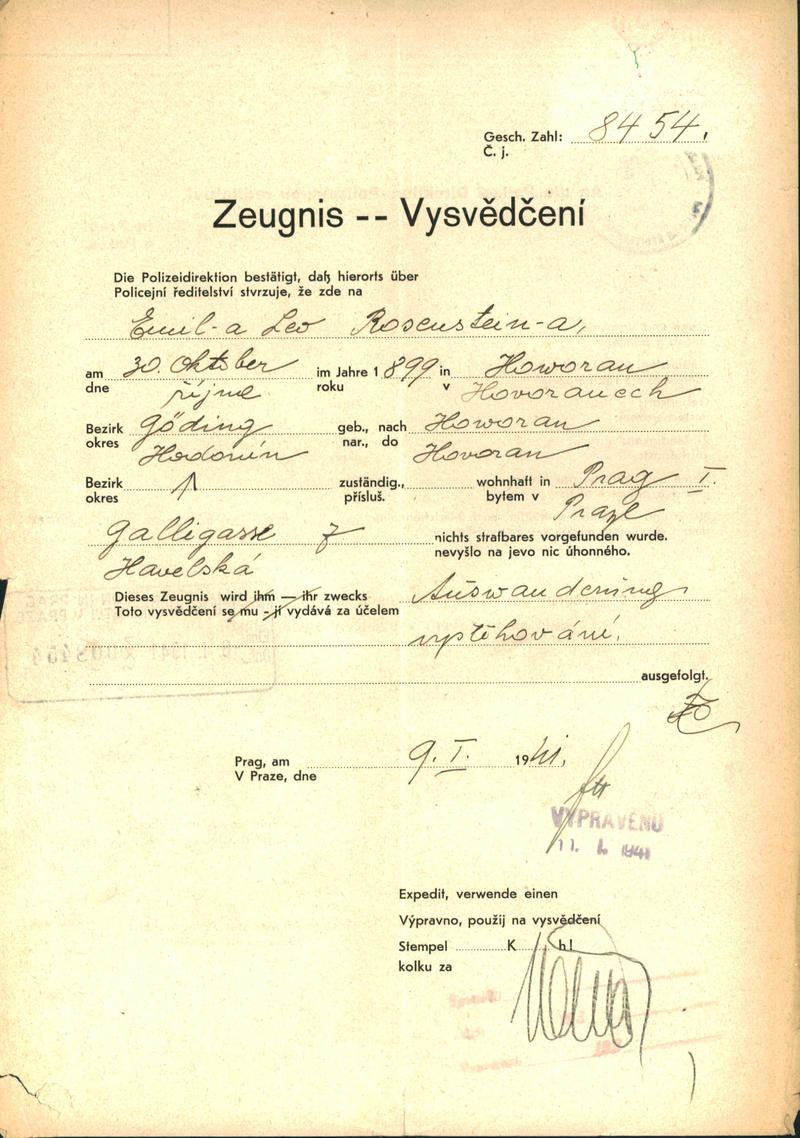 Gesch. Zahl: 8454.
Č. j.
Zeugnis -- Vysvědčení
Die Polizeidirektion bestätigt, daß hierorts über
Policejní ředitelství stvrzuje, že zde na
Emil-a Leo Rosenstein-a,
am 30. Oktober im Jahre 1899 in Howoran
dne října roku v Hovoranech
Bezirk Göding geb., nach Howoran
okres Hodonín nar., do Hovoran
Bezirk zuständig., wohnhaft in Prag I.
okres přísluš. bytem v Praze
Galligasse 7 nichts strafbares vorgefunden wurde.
Havelská nevyšlo na jevo nic úhonného.
Dieses Zeugnis wird ihm — ihr zwecks Auswanderung
Toto vysvědčení se mu - jí vydává za účelem
vystěhování.
ausgefolgt.
Prag, am 9. I. 1941.
V Praze, dne
VYPRAVENO
11. 1. 1941
Expedit, verwende einen
Výpravno, použij na vysvědčení
Stempel K h!
kolku za